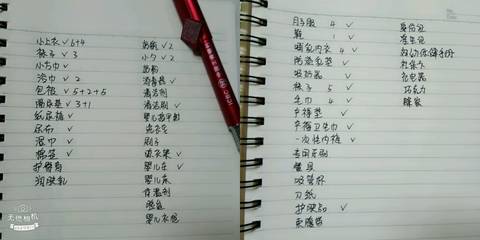 小上衣 ✓ 6+4
袜子 ✓ 3
小方巾 ✓
浴巾 ✓ 2
包被 ✓ 5+2+5
隔尿垫 ✓ 3+1
纸尿裤 ✓
尿布 ✓
湿巾 ✓
棉签 ✓
护臀膏
润肤乳
奶瓶 ✓ 2
小勺 ✓ 2
奶粉
消毒器 ✓
清洁剂
清洁刷 ✓
婴儿指甲剪
洗衣皂
刷子
晾衣架 ✓
婴儿车 ✓
婴儿床 ✓
脸盆
婴儿衣柜
月子服 4 ✓
鞋 1 ✓
哺乳内衣 4 ✓
防溢乳垫 ✓
吸奶器 ✓
袜子 5 ✓
毛巾 4 ✓
产褥垫 ✓
产褥卫生巾 ✓
一次性内裤 ✓
餐具
吸管杯
刀纸
束腹带
身份证
准生证
妇幼保健手册
社保卡
充电器
巧克力